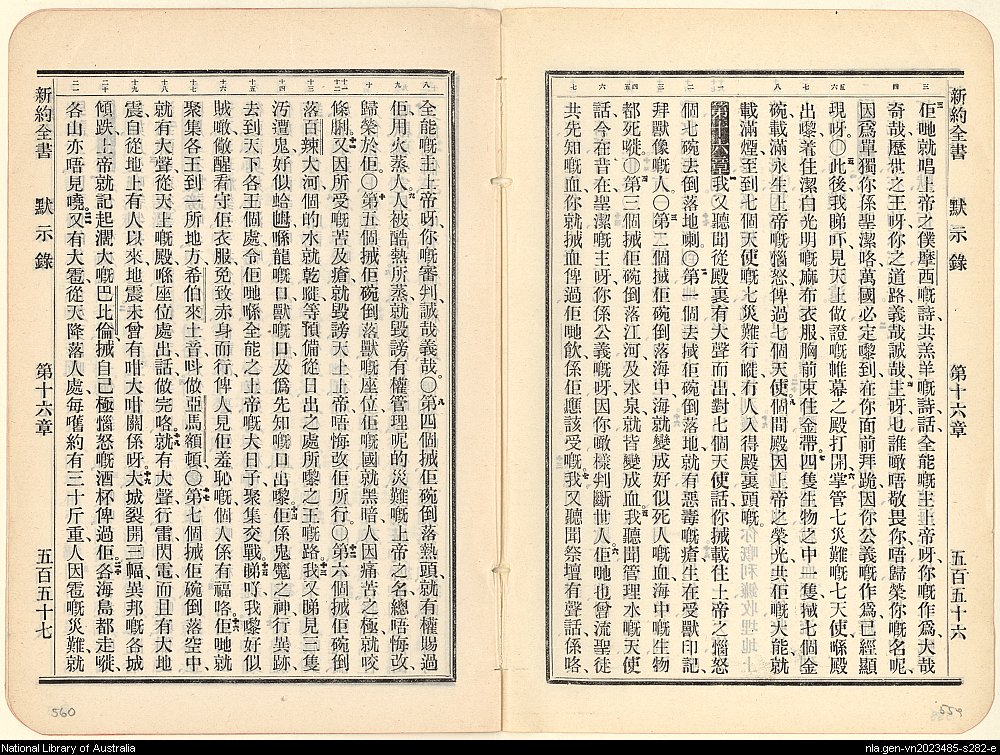 新約全書 默示錄 第十六章 五百五十六
三 四 五 六 七 八 一 二 三 四 五 六 七
佢哋就唱上帝之僕摩西嘅詩共羔羊嘅詩話全能嘅主上帝呀你嘅作爲大哉
奇哉歷世之王呀你之道路義哉誠哉主呀乜誰噉唔敬畏你唔歸榮你嘅名呢
因爲單獨你係聖潔咯萬國必定嚟到在你面前拜跪因你公義嘅作爲已經顯
現呀〇此後我睇吓見天上做證嘅帷幕之殿打開掌管七災難嘅七天使喺殿
出嚟着住潔白光明嘅麻布衣服胸前束住金帶四隻生物之中一隻搣七個金
碗載滿永生上帝嘅惱怒俾過七個天使個間殿因上帝之榮光共佢嘅大能就
載滿煙至到七個天使嘅七災難行嘥有人入得殿裏頭嘅
第十六章我又聽聞從殿裏有大聲而出對七個天使話你搣載住上帝之惱怒
個七碗去倒落地喇〇第一個去搣佢碗倒落地就有惡毒嘅瘡生在受獸印記
拜獸像嘅人〇第二個搣佢碗倒落海中海就變成好似死人嘅血海中嘅生物
都死嘥〇第三個搣佢碗倒落江河及水泉就皆變成血我聽聞管理水嘅天使
話今在昔在聖潔嘅主呀你係公義嘅呀因你噉樣判斷世人佢哋也曾流聖徒
共先知嘅血你就搣血俾過佢哋飲係佢應該受嘅我又聽聞祭壇有聲話係咯
八 九 十 十一 十二 十三 十四 十五 十六 十七 十八 十九 二十 二一
全能嘅主上帝呀你嘅審判誠哉義哉〇第四個搣佢碗倒落熱頭就有權賜過
佢用火蒸人人被酷熱所蒸就毀謗有權管理呢的災難嘅上帝之名總唔悔改
歸榮於佢〇第五個搣佢碗倒落獸嘅座位佢嘅國就黑暗人因痛苦之極就咬
條脷又因所受嘅苦及瘡就毀謗天上上帝唔悔改佢所行〇第六個搣佢碗倒
落百辣大河個的水就乾嘥等預備從日出之處所嚟之王嘅路我又睇見三隻
污遭鬼好似蛤乸喺龍嘅口獸嘅口及僞先知嘅口出嚟佢係鬼魔之神行異跡
去到天下各王個處令佢哋喺全能之上帝嘅大日子聚集交戰睇吓我嚟好似
賊噉儆醒看守佢衣服免致赤身而行俾人見佢羞恥嘅個人係有福咯佢哋就
聚集各王到一所地方希伯來土音呌做亞馬額頓〇第七個搣佢碗倒落空中
就有大聲從天上嘅殿喺座位處出話做完咯就有大聲行雷閃電而且有大地
震自從地上有人以來地震未曾有咁大咁關係呀大城裂開三幅異邦嘅各城
傾跌上帝就記起濶大嘅巴比倫搣自己極惱怒嘅酒杯俾過佢各海島都走嘥
各山亦唔見嘵又有大雹從天降落人處每嚿約有三十斤重人因雹嘅災難就
新約全書 默示錄 第十六章 五百五十七
560
559
National Library of Australia
nla.gen-vn2023485-s282-e